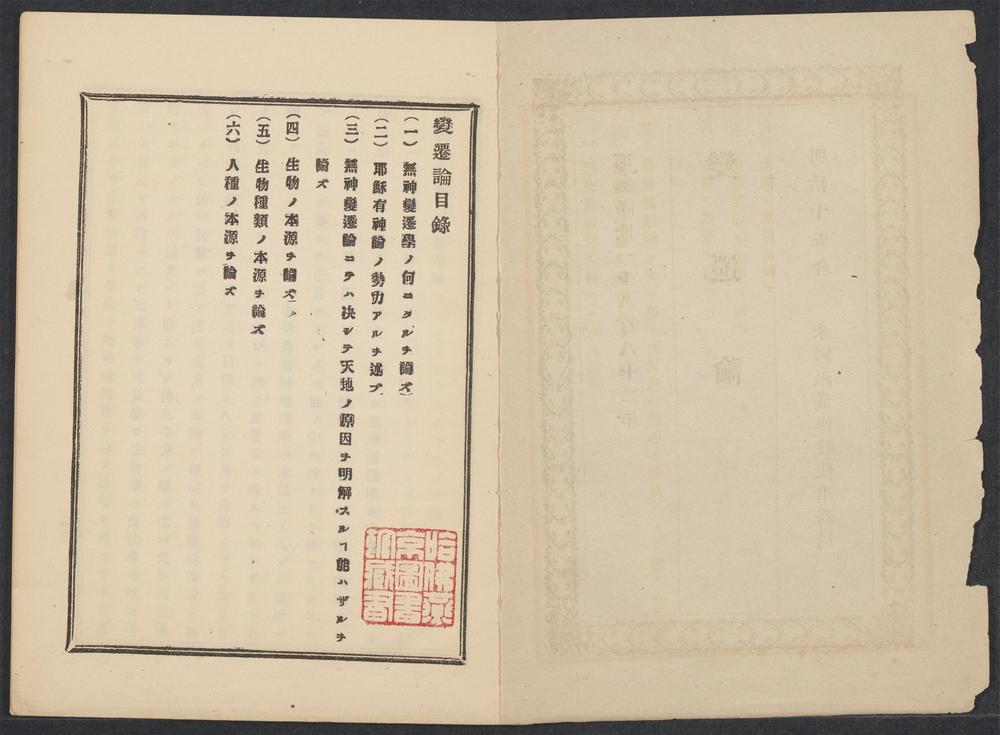 變遷論目錄
(一) 無神變遷學ノ何ニタルヲ論ズ
(二) 耶穌有神論ノ勢力アルヲ述ブ
(三) 無神變遷論ニテハ決シテ天地ノ原因ヲ明解スルヿ能ハザルヲ
論ズ
(四) 生物ノ本源ヲ論ズ
(五) 生物種類ノ本源ヲ論ズ
(六) 人種ノ本源ヲ論ズ
哈佛燕
京圖書
館藏書